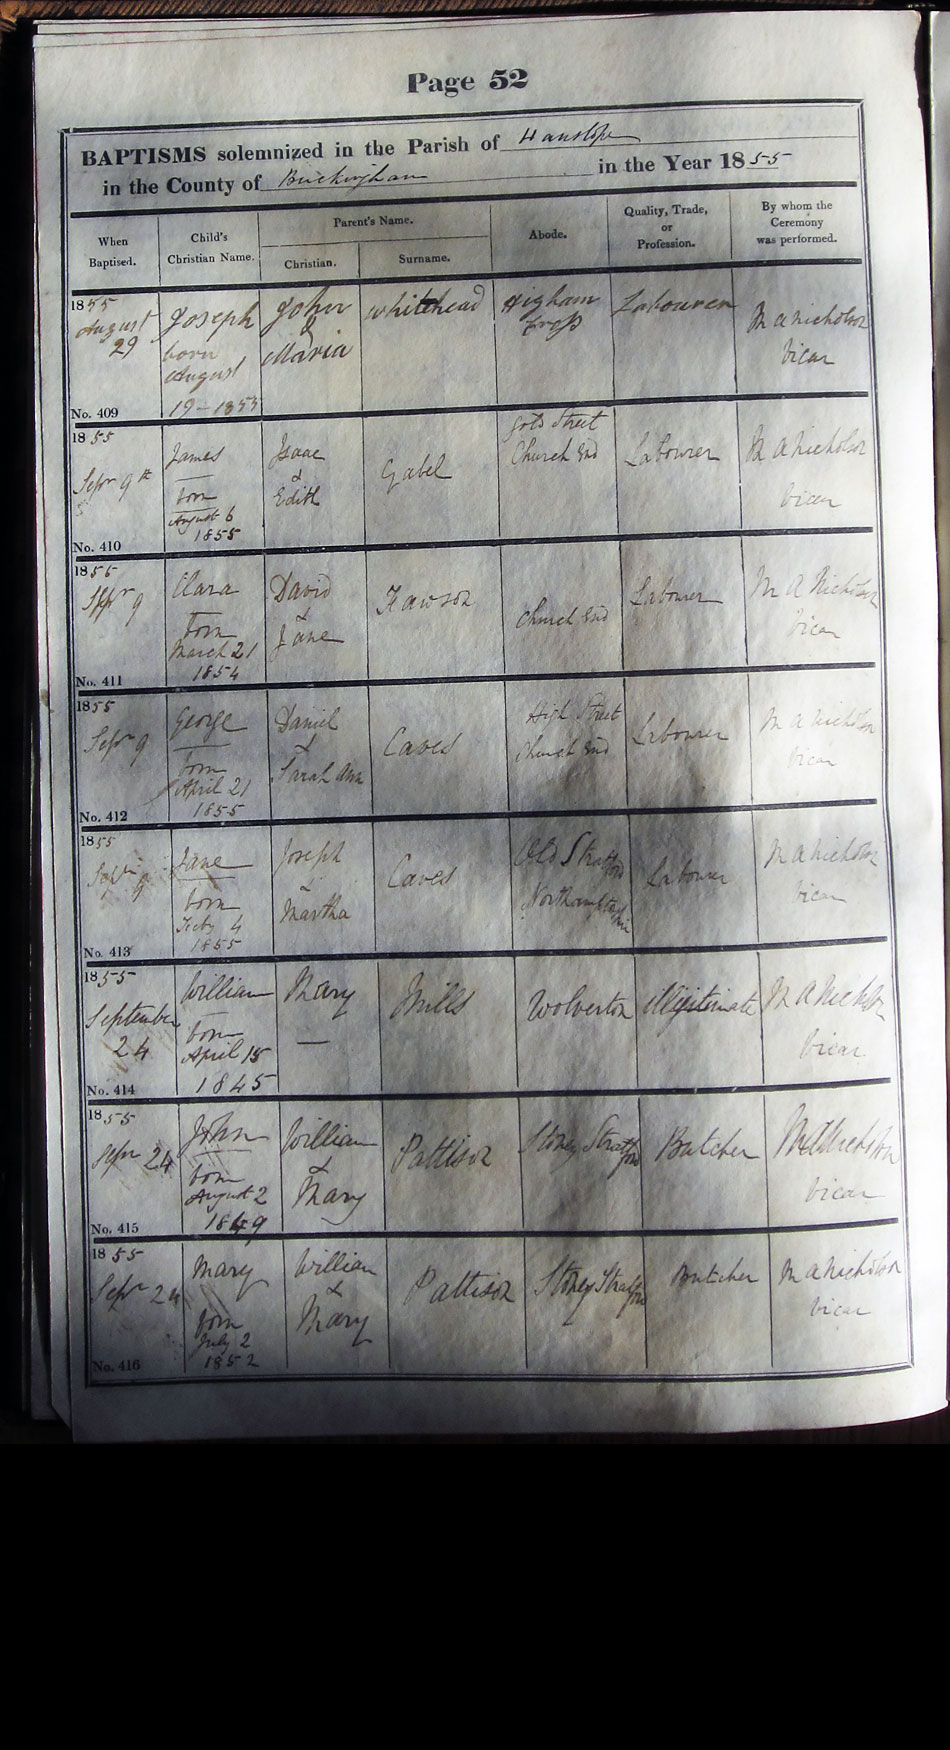 Page 52
BAPTISMS solemnized in the Parish of Hanslope
in the County of Buckingham in the Year 1855
When
Baptised.
Child's
Christian Name.
Parent's Name.
Christian.
Surname.
Abode.
Quality, Trade,
or
Profession.
By whom the
Ceremony
was performed.
1855
August
29
No. 409
Joseph
born
August
19 - 1855
John
&
Maria
Whitehead
Higham
Cross
Labourer
M A Nicholson
Vicar
1855
Sepr 9th
No. 410
James
born
August 6
1855
Isaac
&
Edith
Gabel
Gold Street
Church End
Labourer
M A Nicholson
Vicar
1855
Sepr 9
No. 411
Clara
born
March 21
1854
David
&
Jane
Church End
Labourer
M A Nicholson
Vicar
1855
Sepr 9
No. 412
George
born
April 21
1855
Daniel
&
Sarah Ann
Caves
High Street
Church End
Labourer
M A Nicholson
Vicar
1855
Sepr 9
No. 413
Jane
born
Feby 4
1855
Joseph
&
Martha
Caves
Old Stratford
Northamptonshire
Labourer
M A Nicholson
Vicar
1855
September
24
No. 414
William
born
April 15
1845
Mary
—
Mills
Wolverton
illegitimate
M A Nicholson
Vicar
1855
Sepr 24
No. 415
John
born
August 2
1849
William
&
Mary
Pattison
Stoney Stratford
Butcher
M A Nicholson
Vicar
1855
Sepr 24
No. 416
Mary
born
July 2
1852
William
&
Mary
Pattison
Stoney Stratford
Butcher
M A Nicholson
Vicar